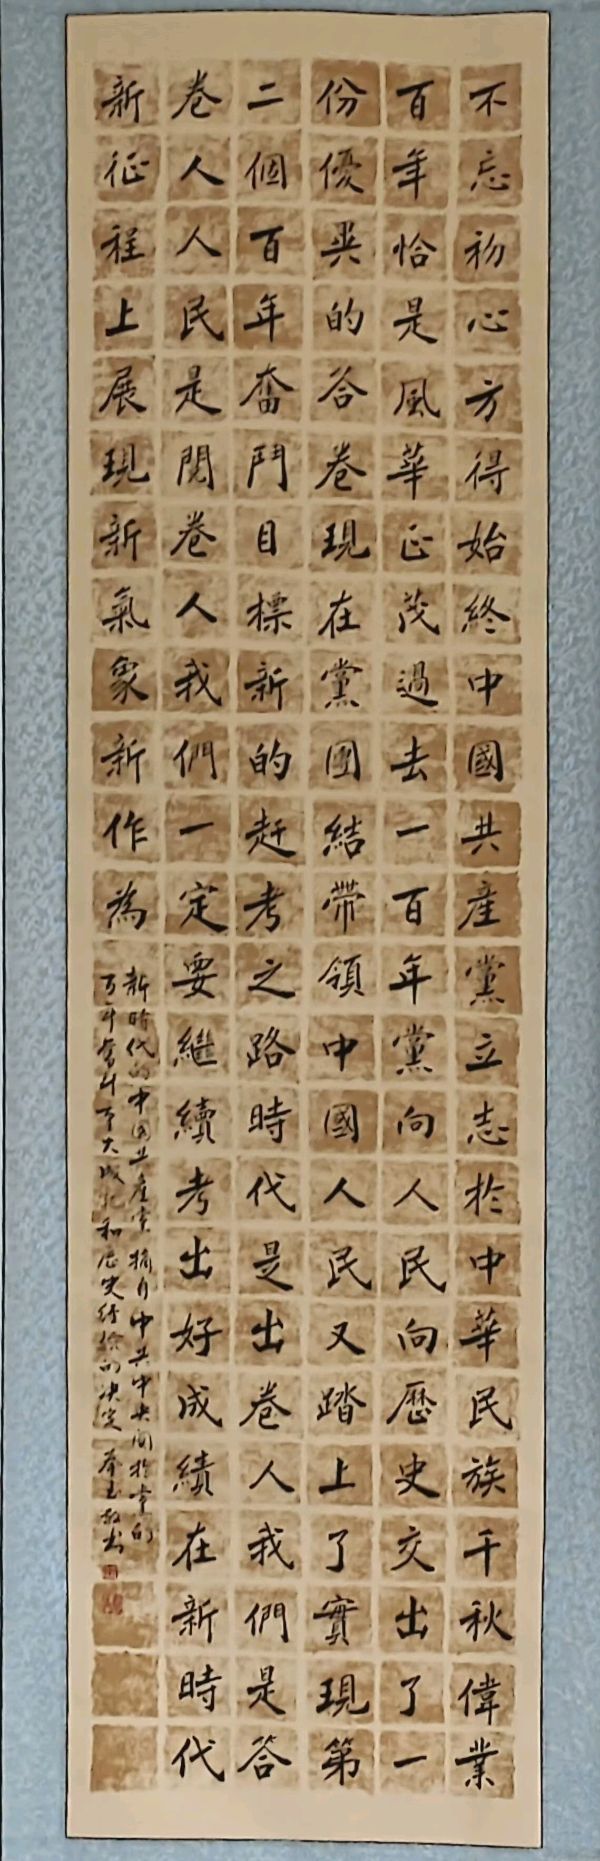 不忘初心方得始終中國共產黨立志於中華民族千秋偉業
百年恰是風華正茂過去一百年黨向人民向歷史交出了一
份優異的答卷現在黨團結帶領中國人民又踏上了實現第
二個百年奮鬥目標新的赶考之路時代是出卷人我們是答
卷人人民是閱卷人我們一定要繼續考出好成績在新時代
新征程上展現新氣象新作為
新時代的中国共產党摘自中共中央関於党的
百年奮斗重大成就和历史经验的决定